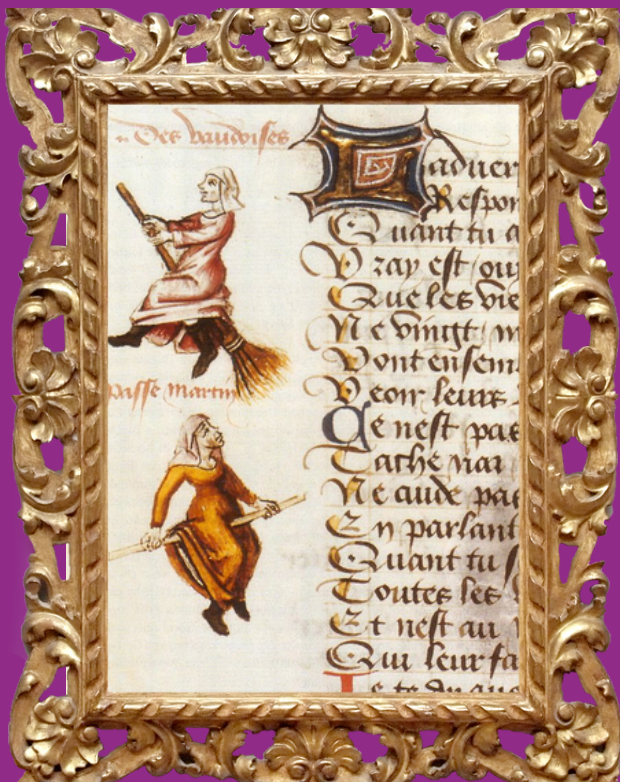 Des vaudoises
passe martin
Laduer
Respon
Quant tu a
Vray est ouy
Que les vie
Ne vingt
Vont ensem
Veoir leurs
Ce nest pas
Tache nai
Ne cuide pas
En parlant
Quant tu
Toutes les
Et nest au
Qui leur fa